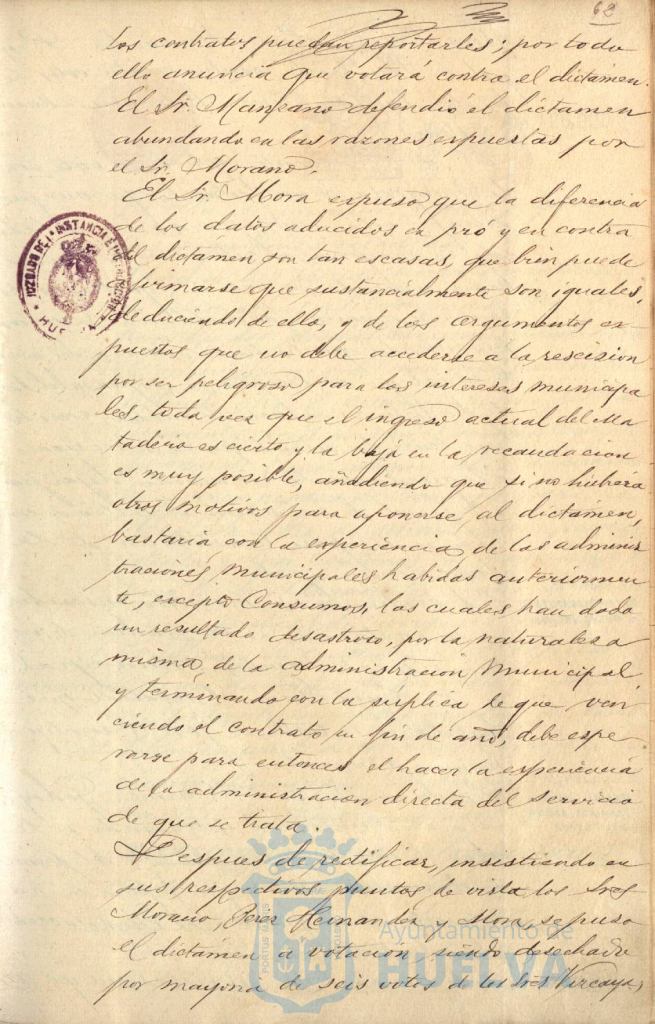 68
los contratos puedan reportarles; por todo
ello anuncia que votará contra el dictámen.
El Sr. Manzano defendió el dictamen
abundando en las razones expuestas por
el Sr. Morano.
El Sr. Mora expuso que la diferencia
de los datos aducidos en pró y en contra
del dictámen son tan escasas, que bien puede
afirmarse que sustancialmente son iguales,
deduciendo de ello, y de los argumentos ex-
puestos que no debe accederse a la rescision
por ser peligroso para los intereses municipa
les, toda vez que el ingreso actual del Ma
tadero es cierto y la baja en la recaudacion
es muy posible, añadiendo que si no hubiera
otros motivos para oponerse al dictamen,
bastaria con la experiencia de las adminis
traciones municipales habidas anteriormen
te, excepto Consumos, las cuales han dado
un resultado desastroso, por la naturaleza
misma de la administracion municipal
y terminando con la súplica de que ven
ciendo el contrato en fin de año, debe espe
rarse para entonces el hacer la experiencia
de la administracion directa del servicio
de que se trata.
Despues de rectificar, insistiendo en
sus respectivos puntos de vista los Sres
Morano, Perez Hernandez y Mora, se puso
el dictamen a votacion siendo desechado
por mayoria de seis votos de los Sres Vizcaya,
JUZGADO DE 1ª INSTANCIA
HUELVA
PORTUS MARIS
Ayuntamiento de
HUELVA